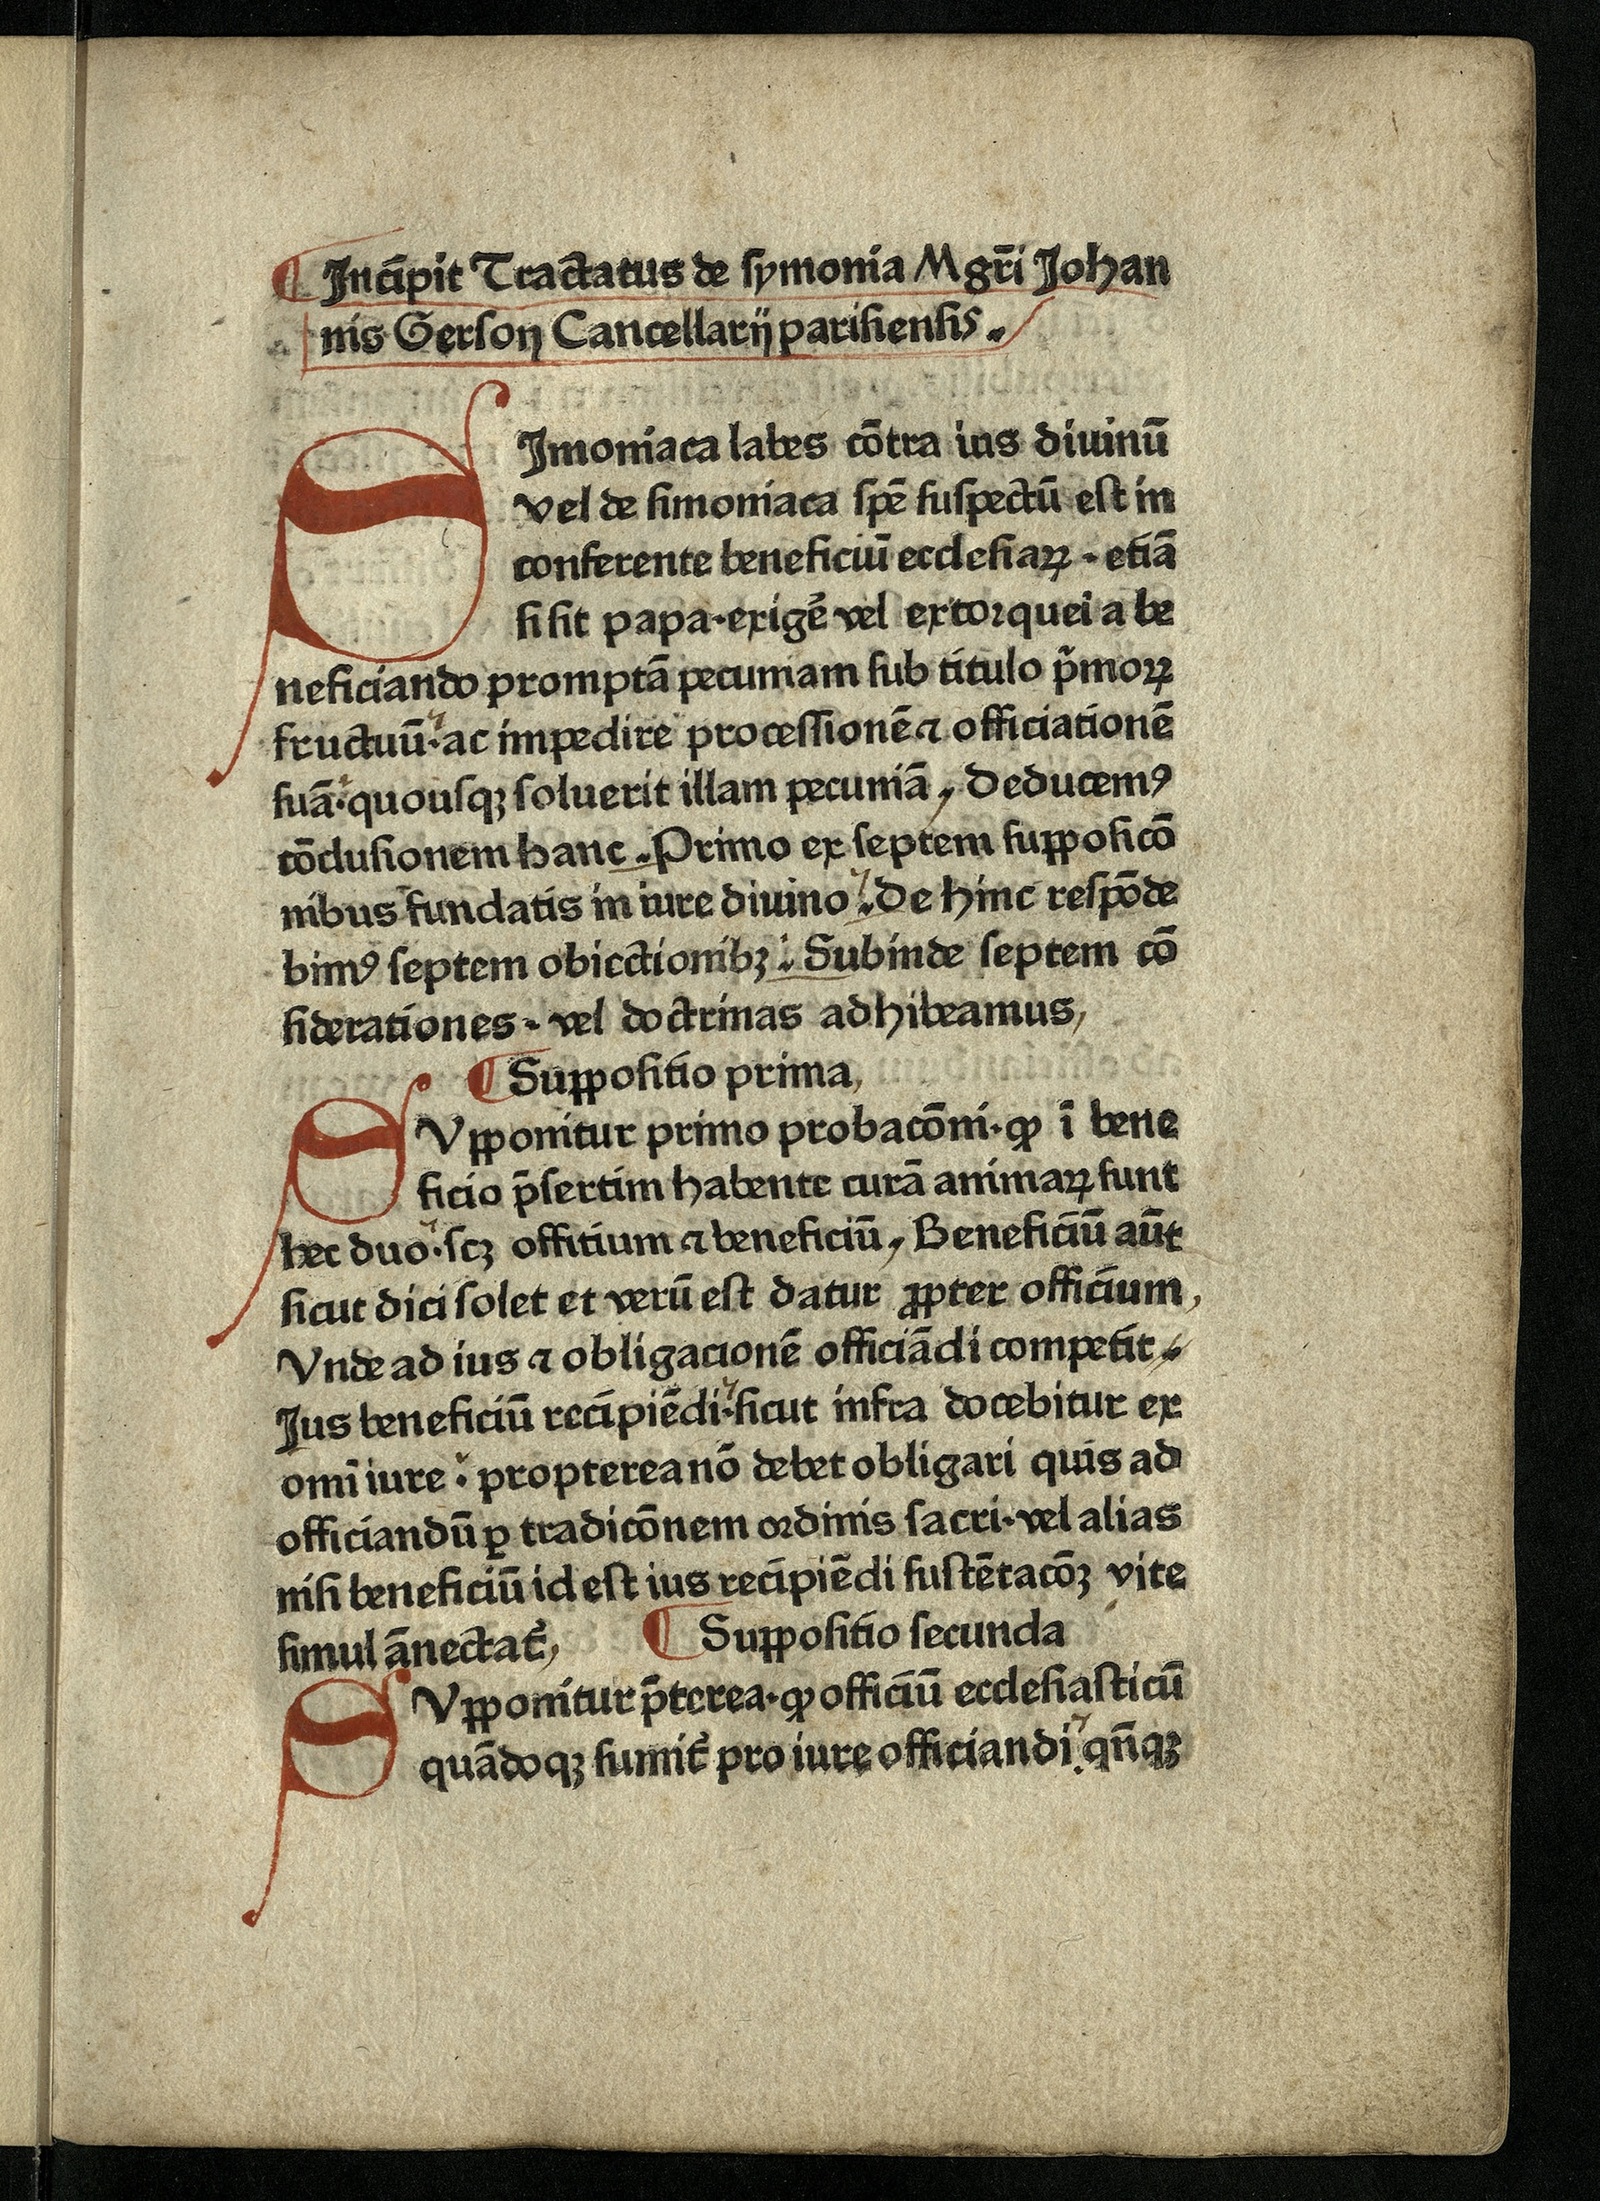 ¶ Incipit Tractatus de ſymonia Mgr̄i Johan
nis Gerſon Cancellarij pariſienſis.
SImoniaca labes cōtra ius diuinū
vel de ſimoniaca ſpē ſuſpectū eſt in
conferente beneficiū eccleſiaꝝ · etiā
ſi ſit papa · exigē vel extorquei a be
neficiando promptā pecuniam ſub titulo p̄moꝝ
fructuū · ac impedire proceſſionē ⁊ officiationē
ſuā · quouſqꝫ ſoluerit illam pecuniā, Deducemꝰ
cōcluſionem hanc . Primo ex ſeptem ſuppoſicō
nibus fundatis in iure diuino . De hinc reſpōde
bimꝰ ſeptem obiectionibꝫ . Subinde ſeptem cō
ſiderationes · vel doctrinas adhibeamus,
¶ Suppoſitio prima,
SVpponitur primo probacōni · ꝙ ī bene
ficio p̄ſertim habente curā animaꝝ ſunt
hec duo · ſcꝫ offitium ⁊ beneficiū, Beneficiū aūt
ſicut dici ſolet et verū eſt datur ꝓpter officium,
Vnde ad ius ⁊ obligacionē officiādi competit .
Ius beneficiū recipiēdi · ſicut infra docebitur ex
omī iure : propterea nō debet obligari quis ad
officiandū ꝑ tradicōnem ordinis ſacri · vel alias
niſi beneficiū id eſt ius recipiēdi ſuſtētacōꝫ vite
ſimul ānectat᷑, ¶ Suppoſitio ſecunda
SVpponitur p̄terea · ꝙ officiū eccleſiaſticū
quādoqꝫ ſumit᷑ pro iure officiandi . qn̄qꝫ